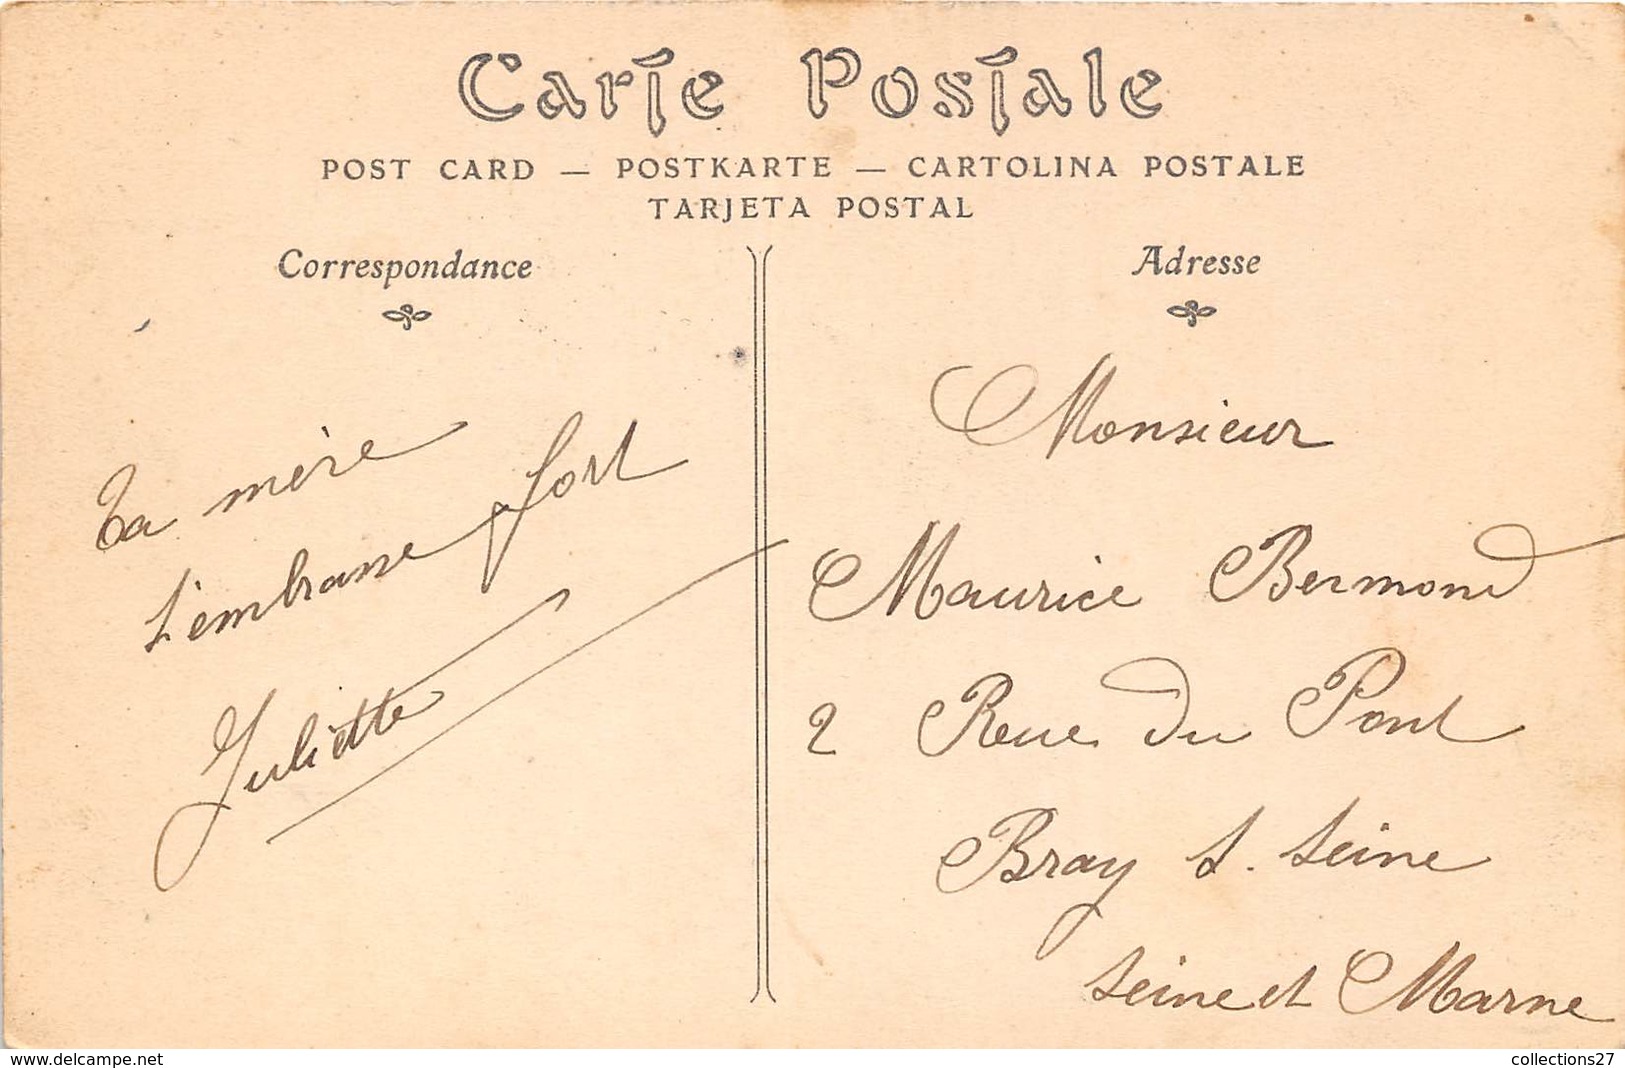 Carte Postale
POST CARD — POSTKARTE — CARTOLINA POSTALE
TARJETA POSTAL
Correspondance
Adresse
Ta mère
t'embrasse fort
Juliette
Monsieur
Maurice Bermond
2 Rue du Pont
Bray s. Seine
Seine et Marne
www.delcampe.net
collections27